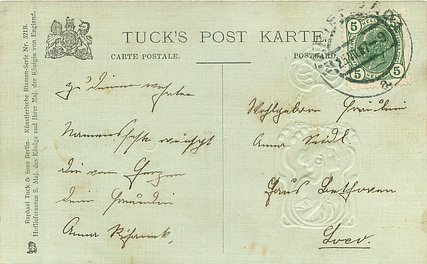 TUCK'S POST KARTE
CARTE POSTALE.
POSTCARD.
Raphael Tuck & Sons Berlin. Künstlerische Blumen-Serie Nr.
Hoflieferanten S. Maj. des Königs und Ihrer Maj. der Königin von England.
5
5
zu Deinem werten
Namensfeste wünscht
Dir vom Herzen
Deine Freundin
Anna
Wohlgeboren Fräulein
Anna Seidl.
Haus Bethoven